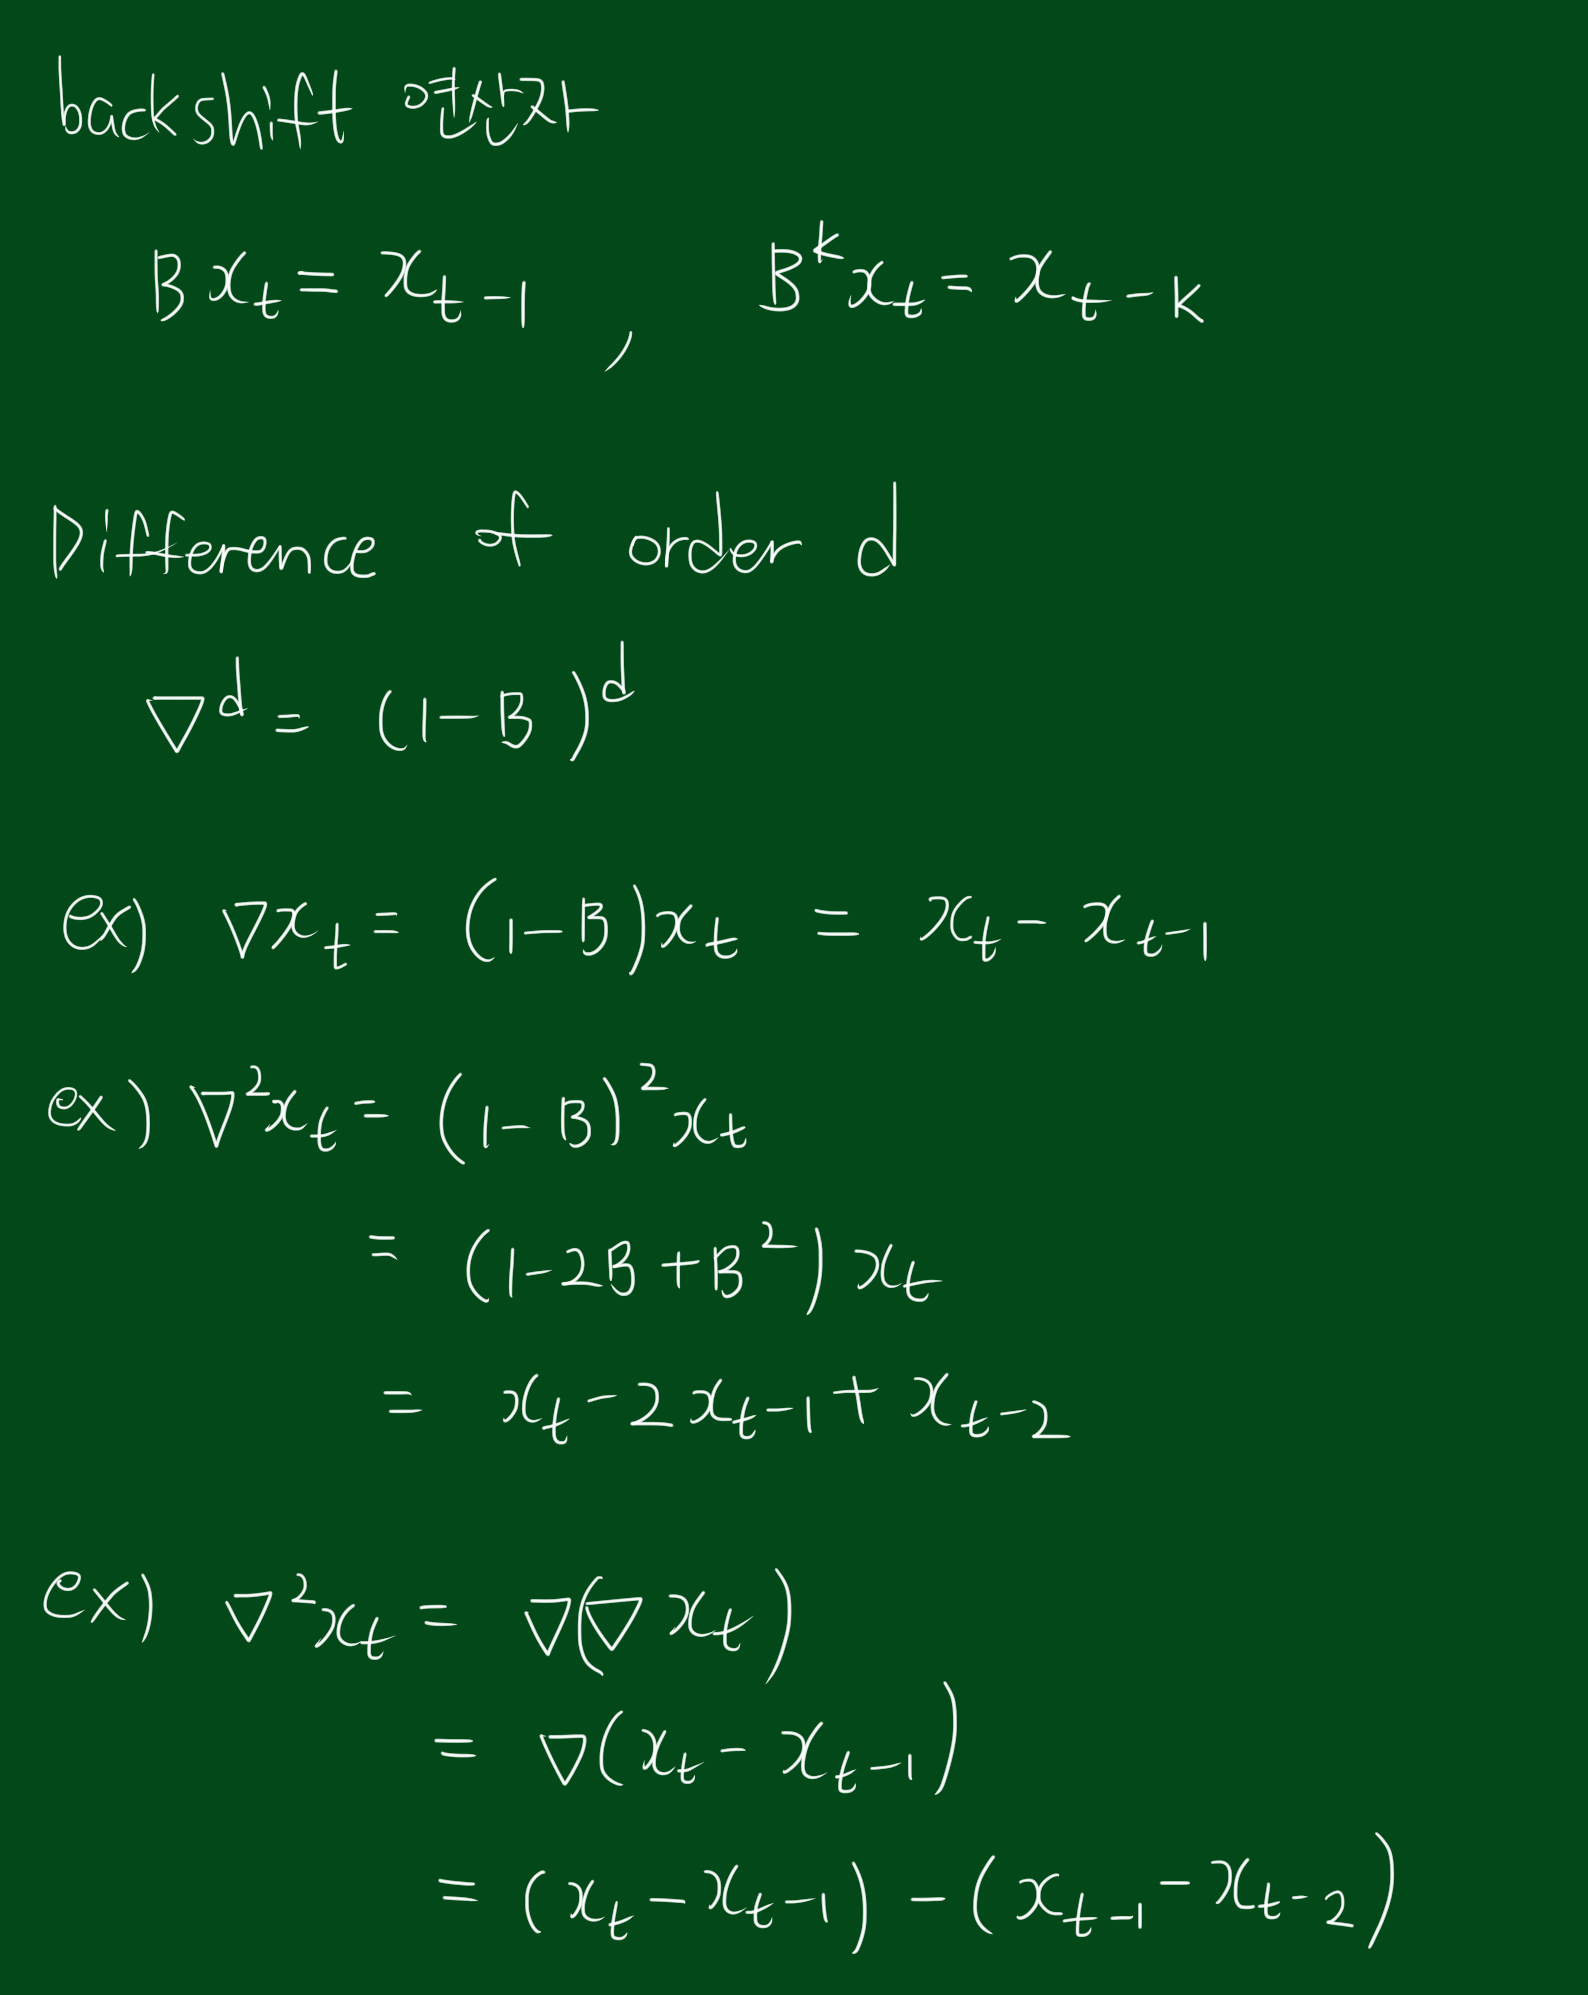 backshift 연산자
Bxₜ = xₜ₋₁ , Bᵏxₜ = xₜ₋ₖ
Difference of order d
∇ᵈ = (1-B)ᵈ
ex) ∇xₜ = (1-B)xₜ = xₜ - xₜ₋₁
ex) ∇²xₜ = (1-B)²xₜ
= (1-2B+B²)xₜ
= xₜ - 2xₜ₋₁ + xₜ₋₂
ex) ∇²xₜ = ∇(∇xₜ)
= ∇(xₜ - xₜ₋₁)
= (xₜ - xₜ₋₁) - (xₜ₋₁ - xₜ₋₂)